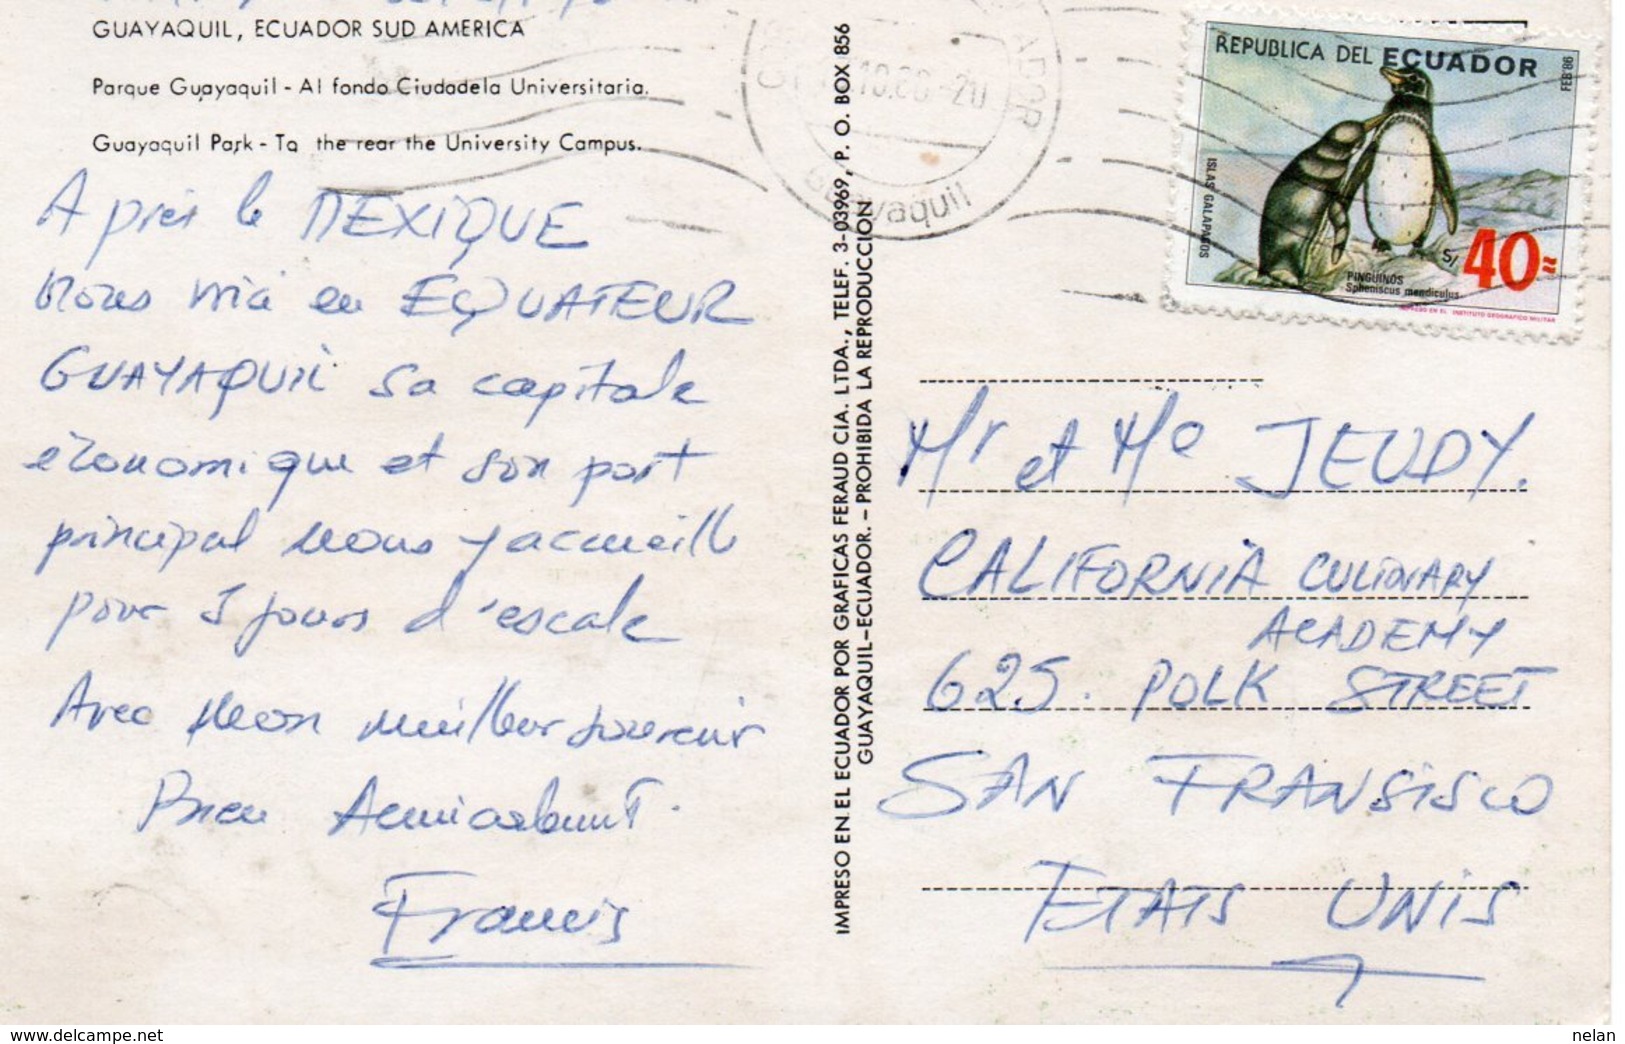 GUAYAQUIL, ECUADOR SUD AMERICA
Parque Guayaquil - Al fondo Ciudadela Universitaria.
Guayaquil Park - To the rear the University Campus.
Après le MEXIQUE
nous voici en EQUATEUR
GUAYAQUIL sa capitale
économique et son port
principal nous y accueille
pour 5 jours d'escale
Avec mon meilleur souvenir
Bien Amicalement.
Francis
IMPRESO EN EL ECUADOR POR GRAFICAS FERAUD CIA. LTDA., TELEF. 3-03969, P. O. BOX 856
GUAYAQUIL-ECUADOR. - PROHIBIDA LA REPRODUCCION
10.86-20
Guayaquil
REPUBLICA DEL ECUADOR
FEB'86
ISLAS GALAPAGOS
PINGUINOS
Spheniscus mendiculus
S/ 40=
IMPRESO EN EL INSTITUTO GEOGRAFICO MILITAR
Mr et Me JEUDY.
CALIFORNIA CULINARY
ACADEMY
625. POLK STREET
SAN FRANSISCO
ETATS UNIS
www.delcampe.net
nelan